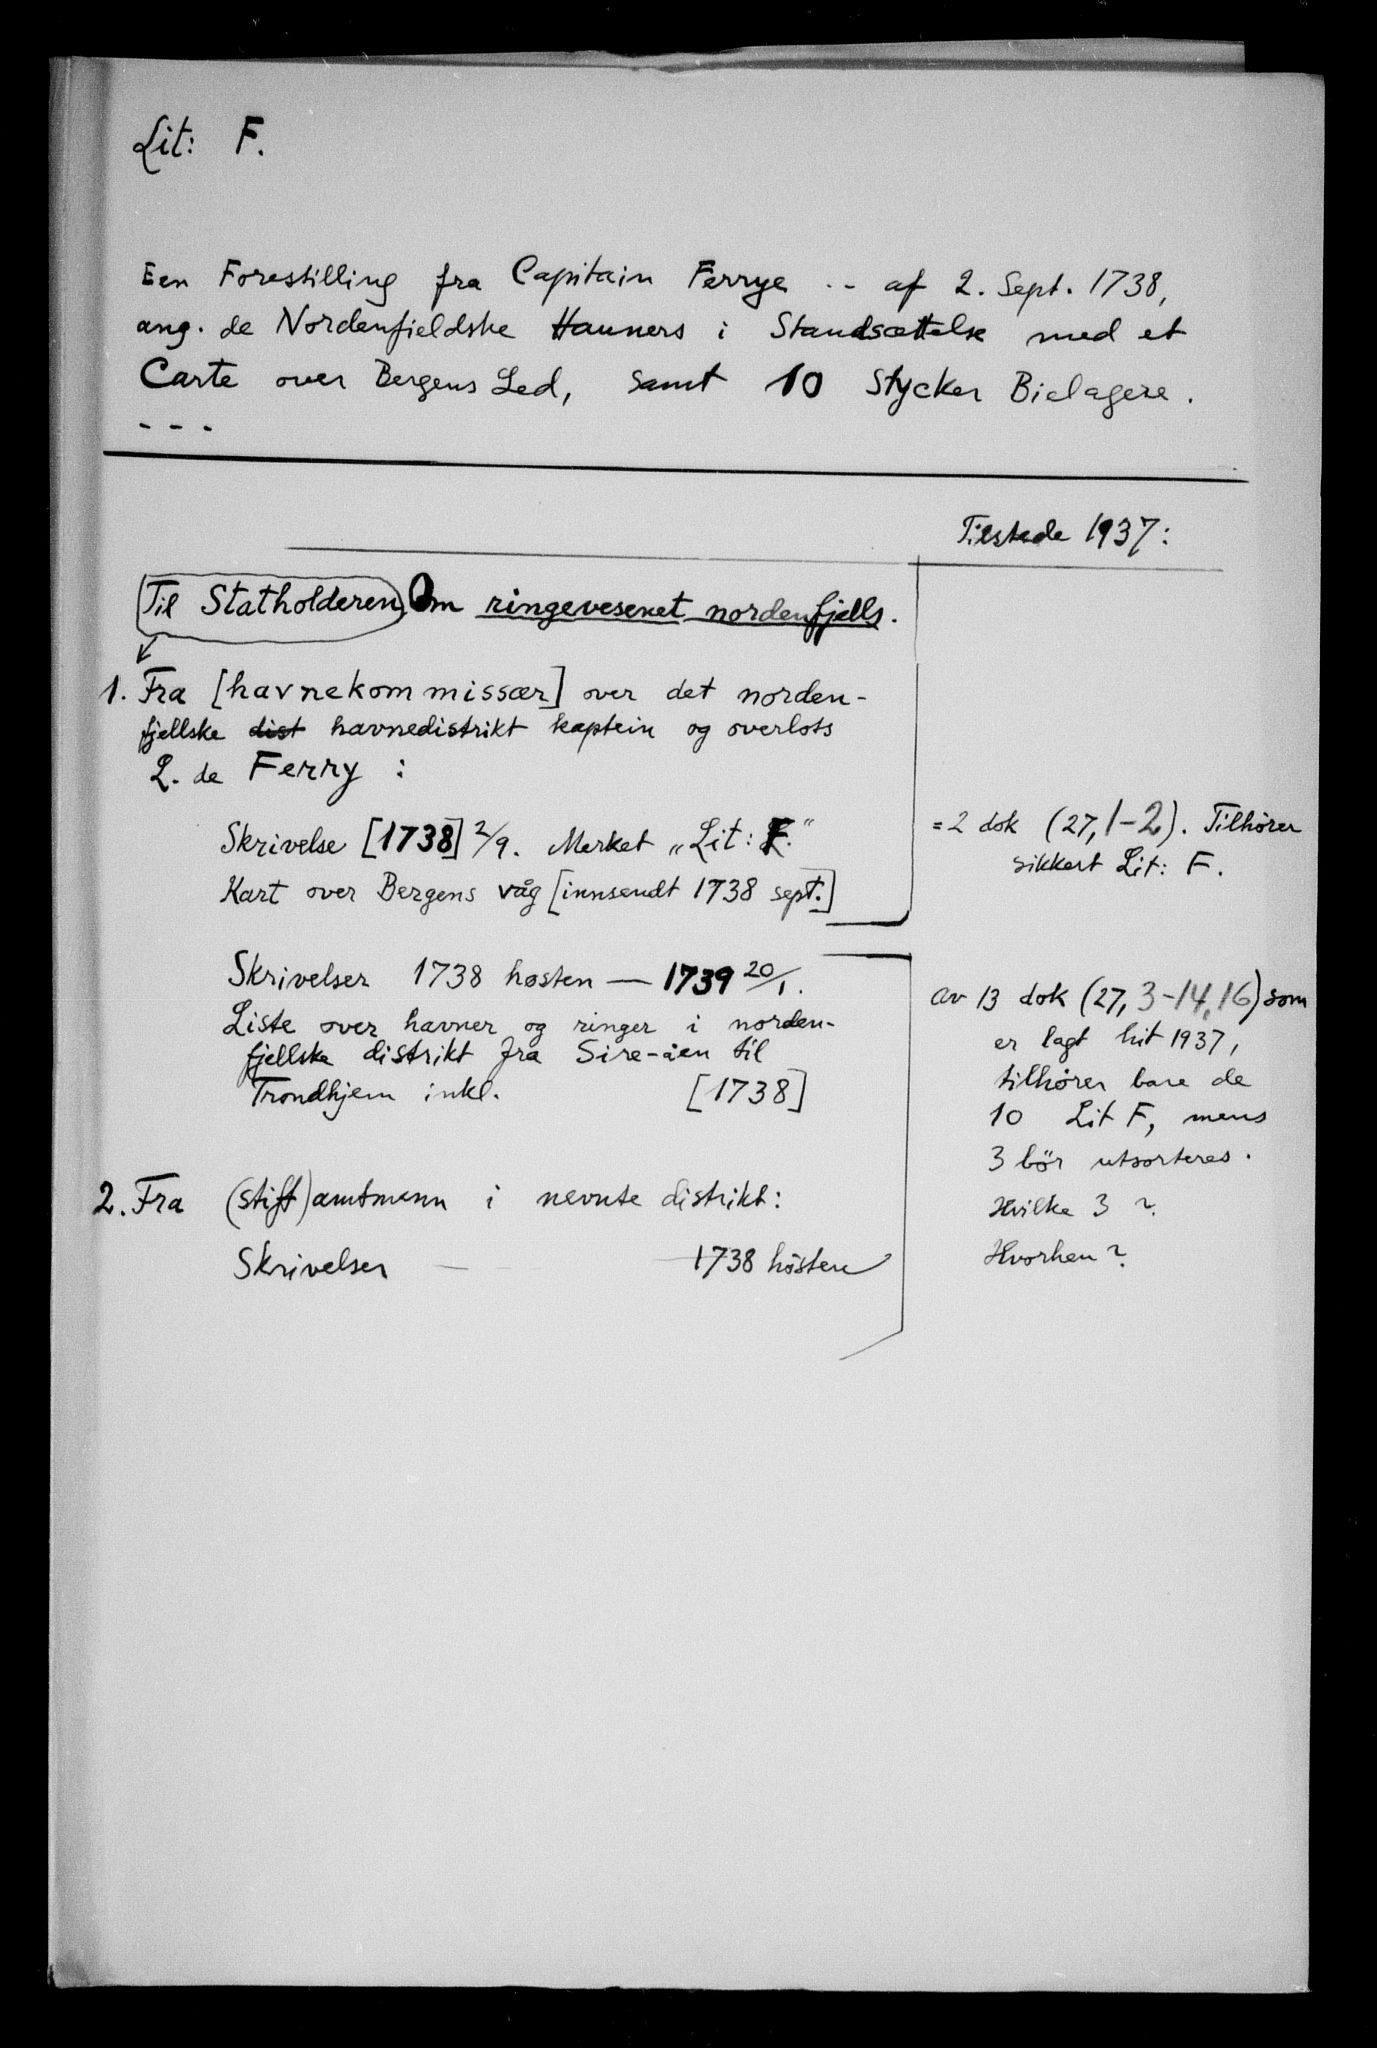 Lit: F.
Een Forestilling fra Capitain Ferrye .. af 2. Sept. 1738,
ang. de Nordenfieldske Hauners i Standsættelse med et
Carte over Bergens Led, samt 10 Stycker Bielagere.
- - -
Tilstede 1937:
Til Statholderen, Om ringevesenet nordenfjells.
1. Fra [havnekommissær] over det norden-
fjellske dist havnedistrikt kaptein og overlots
L. de Ferry :
Skrivelse [1738] 2/9. Merket „Lit: F."
= 2 dok (27, 1-2). Tilhører
sikkert Lit: F.
Kart over Bergens våg [innsendt 1738 sept.]
Skrivelser 1738 høsten — 1739 20/1.
Liste over havner og ringer i norden-
fjellske distrikt fra Sire-åen til
Trondhjem inkl. [1738]
av 13 dok (27, 3-14, 16) som
er lagt hit 1937,
tilhører bare de
10 Lit F, mens
3 bör utsorteres.
Hvilke 3 ?
Hvorhen ?
2. Fra (stift)amtmenn i nevnte distrikt:
Skrivelser — 1738 hösten